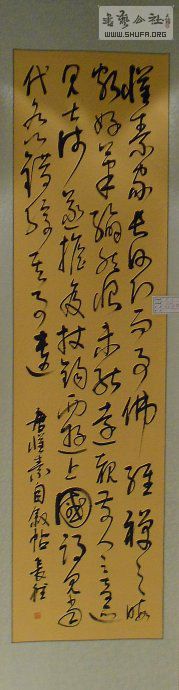 書藝公社
WWW.SHUFA.ORG
懷素家長沙幼而事佛經禪之暇
頗好筆翰然恨未能遠覩前人之奇迹所
見甚淺遂擔笈杖錫西遊上國謁見當
代名公錯綜其事遺
書懷素自叙帖